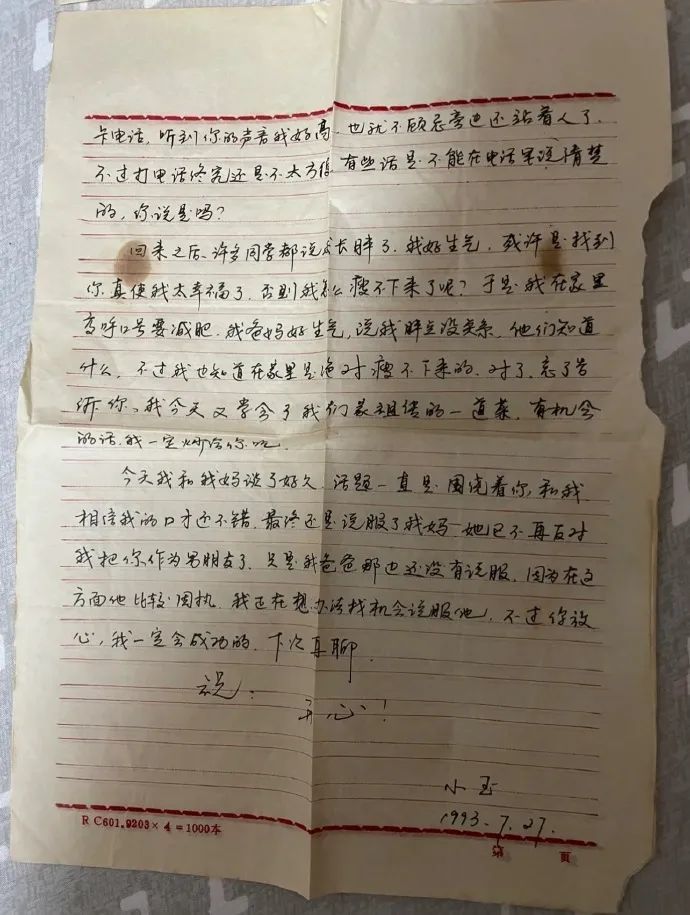 卡电话，听到你的声音我好高，也就不顾忌旁边还站着人了．
不过打电话终究还是不太方便，有些话是不能在电话里说清楚
的，你说是吗？
回来之后，许多同学都说我长胖了，我好生气，或许是找到
你，真使我太幸福了，否则我怎么瘦不下来了呢？于是我在家里
高呼口号要减肥．我爸妈好生气，说我胖点没关系，他们知道
什么，不过我也知道在家里是绝对瘦不下来的．对了，忘了告
诉你，我今天又学会了我们家祖传的一道菜，有机会
的话，我一定炒给你吃．
今天我和我妈谈了好久，话题一直是围绕着你和我．
相信我的口才还不错，最终还是说服了我妈，她已不再反对
我把你作为男朋友了．只是我爸爸那边还没有说服，因为在这
方面他比较固执，我正在想办法找机会说服他，不过你放
心，我一定会成功的．下次再聊．
祝：
开心！
小玉
1993.7.27.
R C601.9203×4＝1000本
第 頁